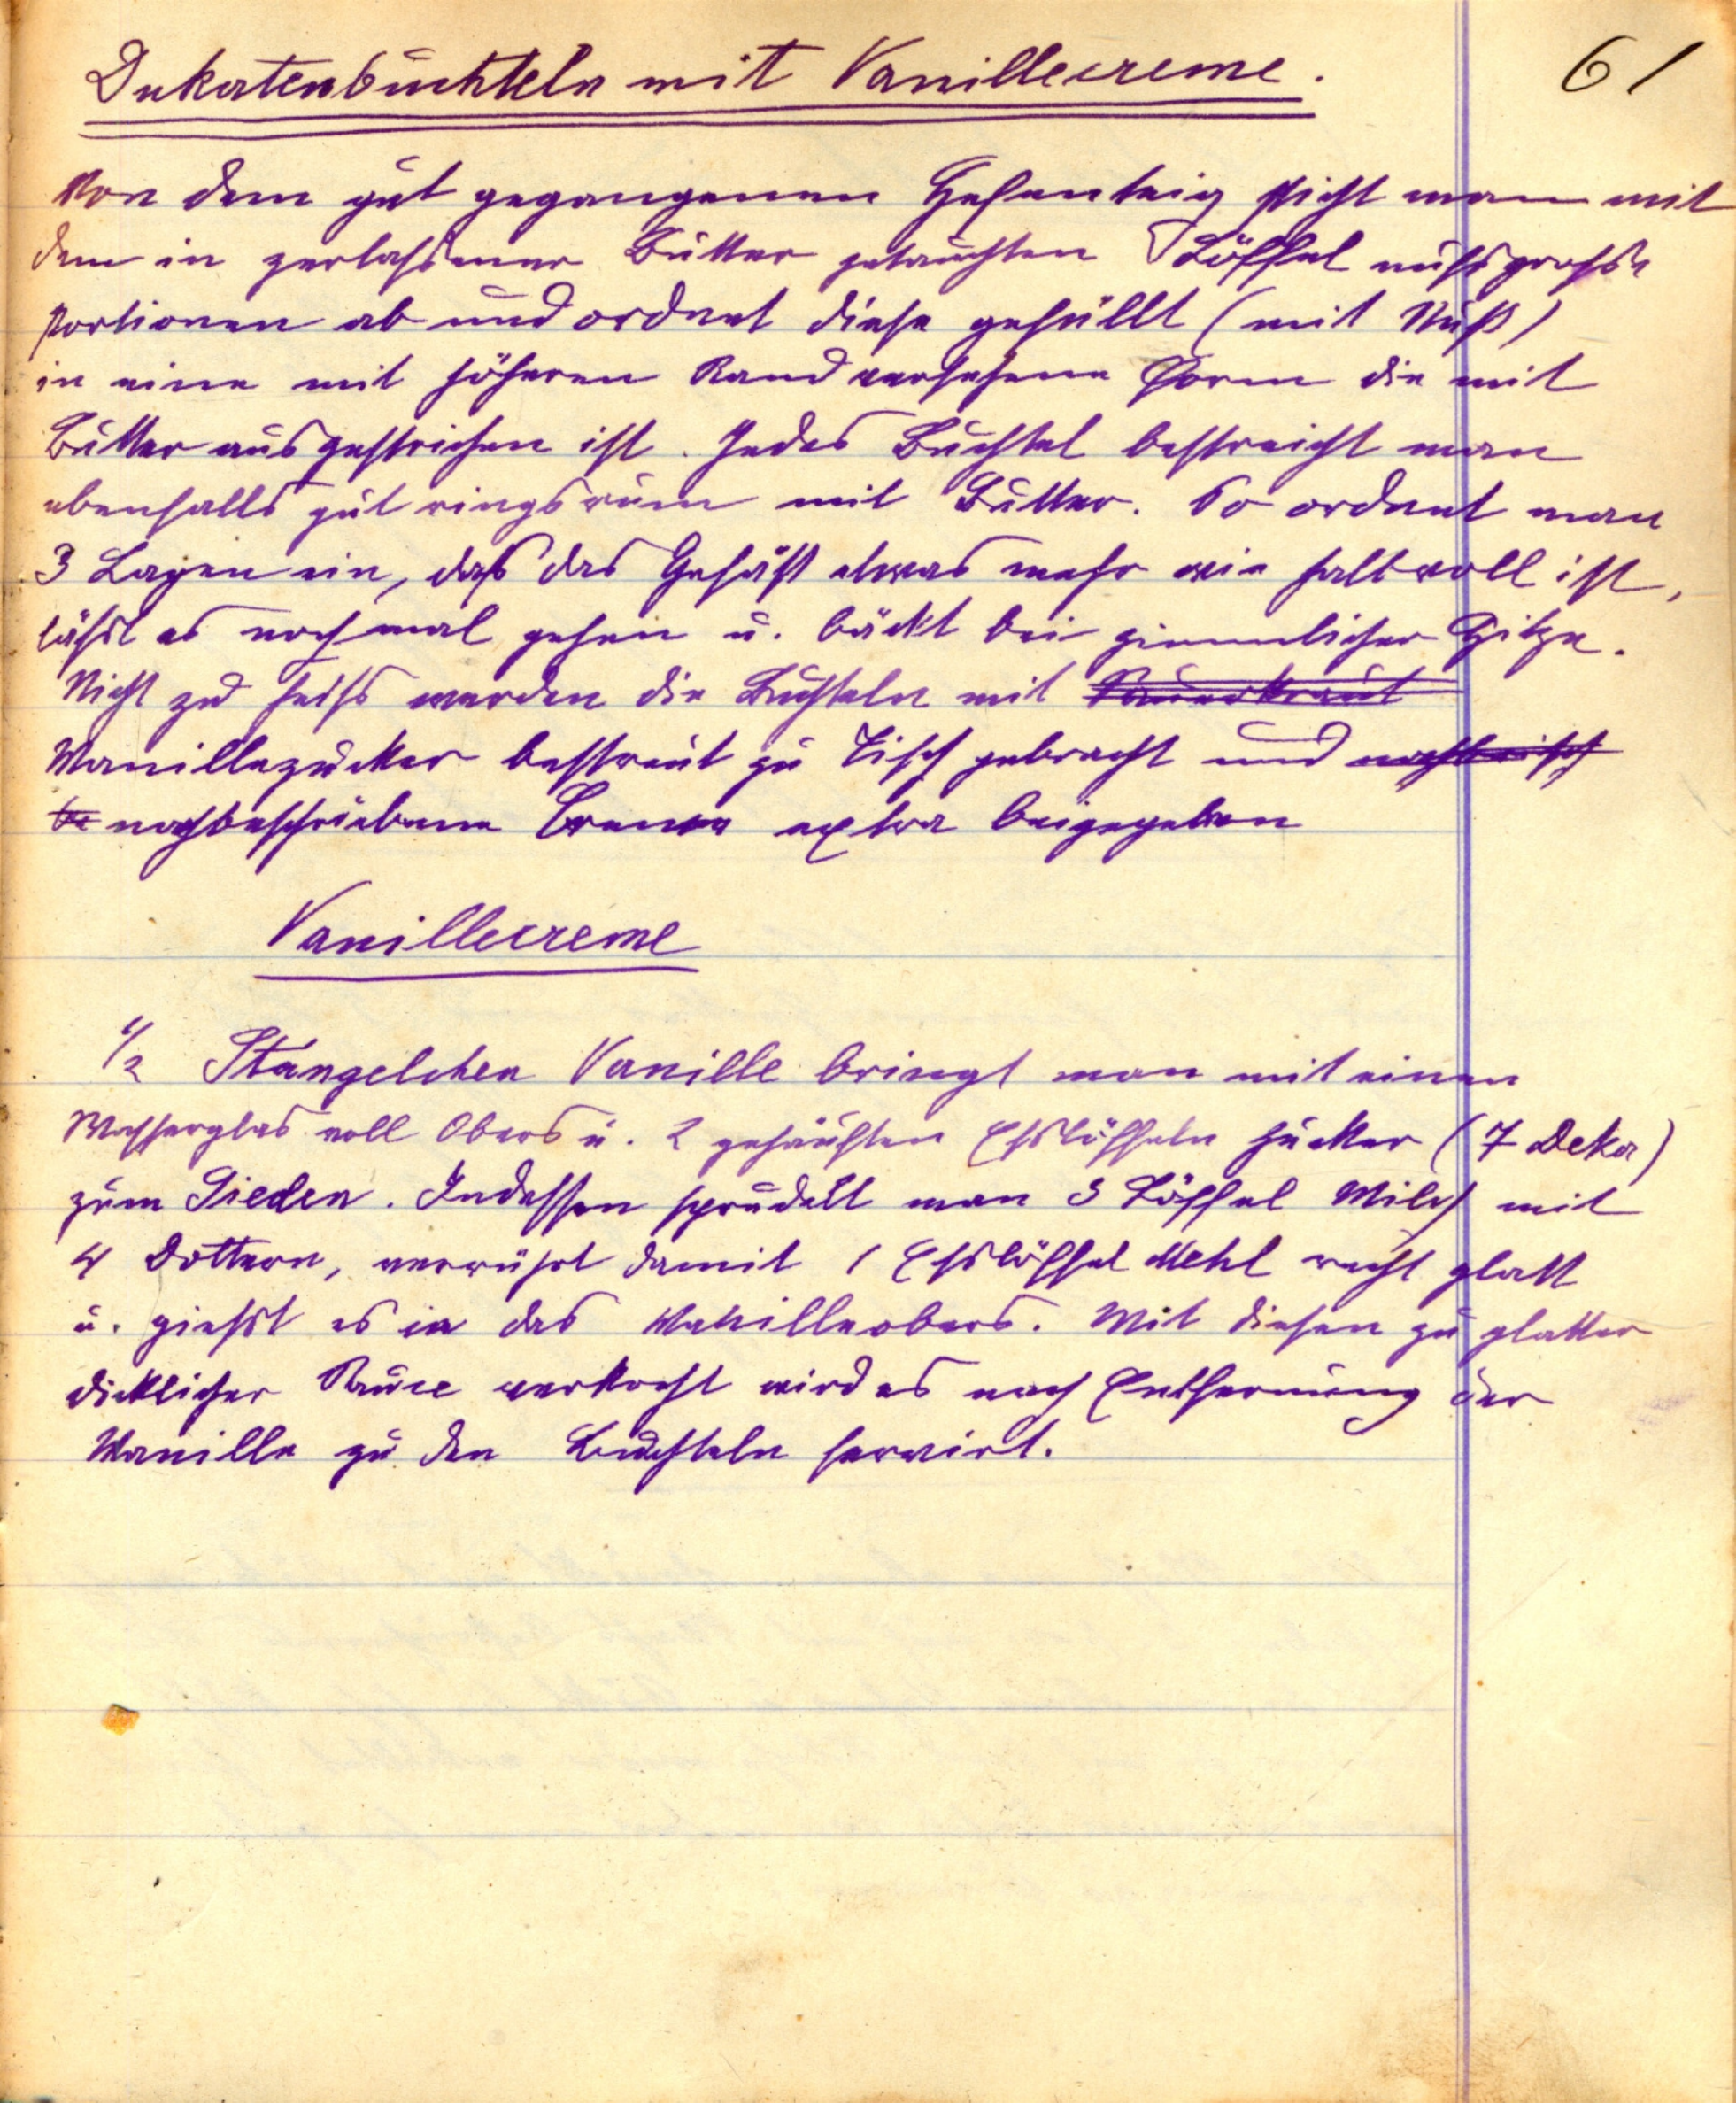 Dukatenbuchteln mit Vanillecreme. 61
Von dem gut gegangenen Hefenteig sticht man mit
dem in zerlassener Butter getauchten Löffel nussgrosse
Portionen ab und ordnet diese gefüllt (mit Nuß)
in eine mit höheren Rand versehene Form die mit
Butter ausgestrichen ist. Jedes Buchtel bestreicht man
ebenfalls gut ringsrum mit Butter. So ordnet man
3 Lagen ein, daß das Gefäß etwas mehr wie halbvoll ist,
lässt es nochmal gehen u. bäckt bei ziemlicher Hitze.
Nicht zu heiss werden die Buchteln mit Sauerkraut
Vanillezucker bestreut zu Tisch gebracht und
nachbeschriebene Creme extra beigegeben
Vanillecreme
1/2 Stangelchen Vanille bringt man mit einen
Wasserglas voll Obers u. 2 gehäuften Esslöffeln Zucker (7 Deka)
zum Sieden. Indessen sprudelt man 3 Löffel Milch mit
4 Dottern, verrührt damit 1 Esslöffel Mehl recht glatt
u. giesst es in das Vanilleobers. Mit diesen zu glatter
dicklicher Sauce verkocht wird es nach Entfernung der
Vanille zu den Buchteln servirt.